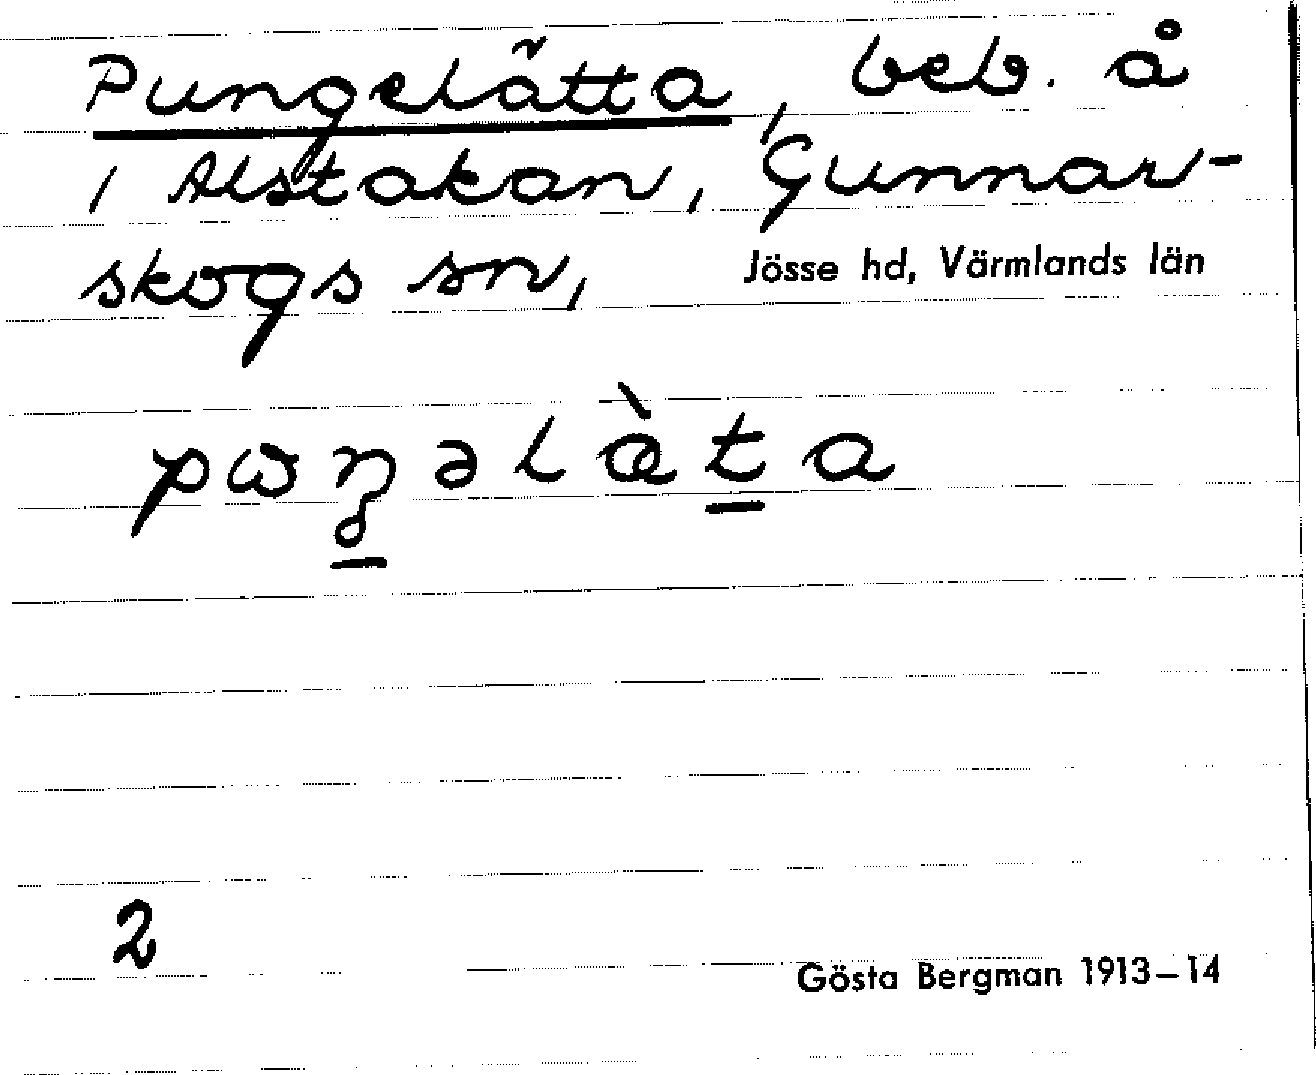 Pungelätta, beb. å
i Alstakan, Gunnar-
skogs sn, Jösse hd, Värmlands län
pɷŋəlæ̀ta
2
Gösta Bergman 1913–14